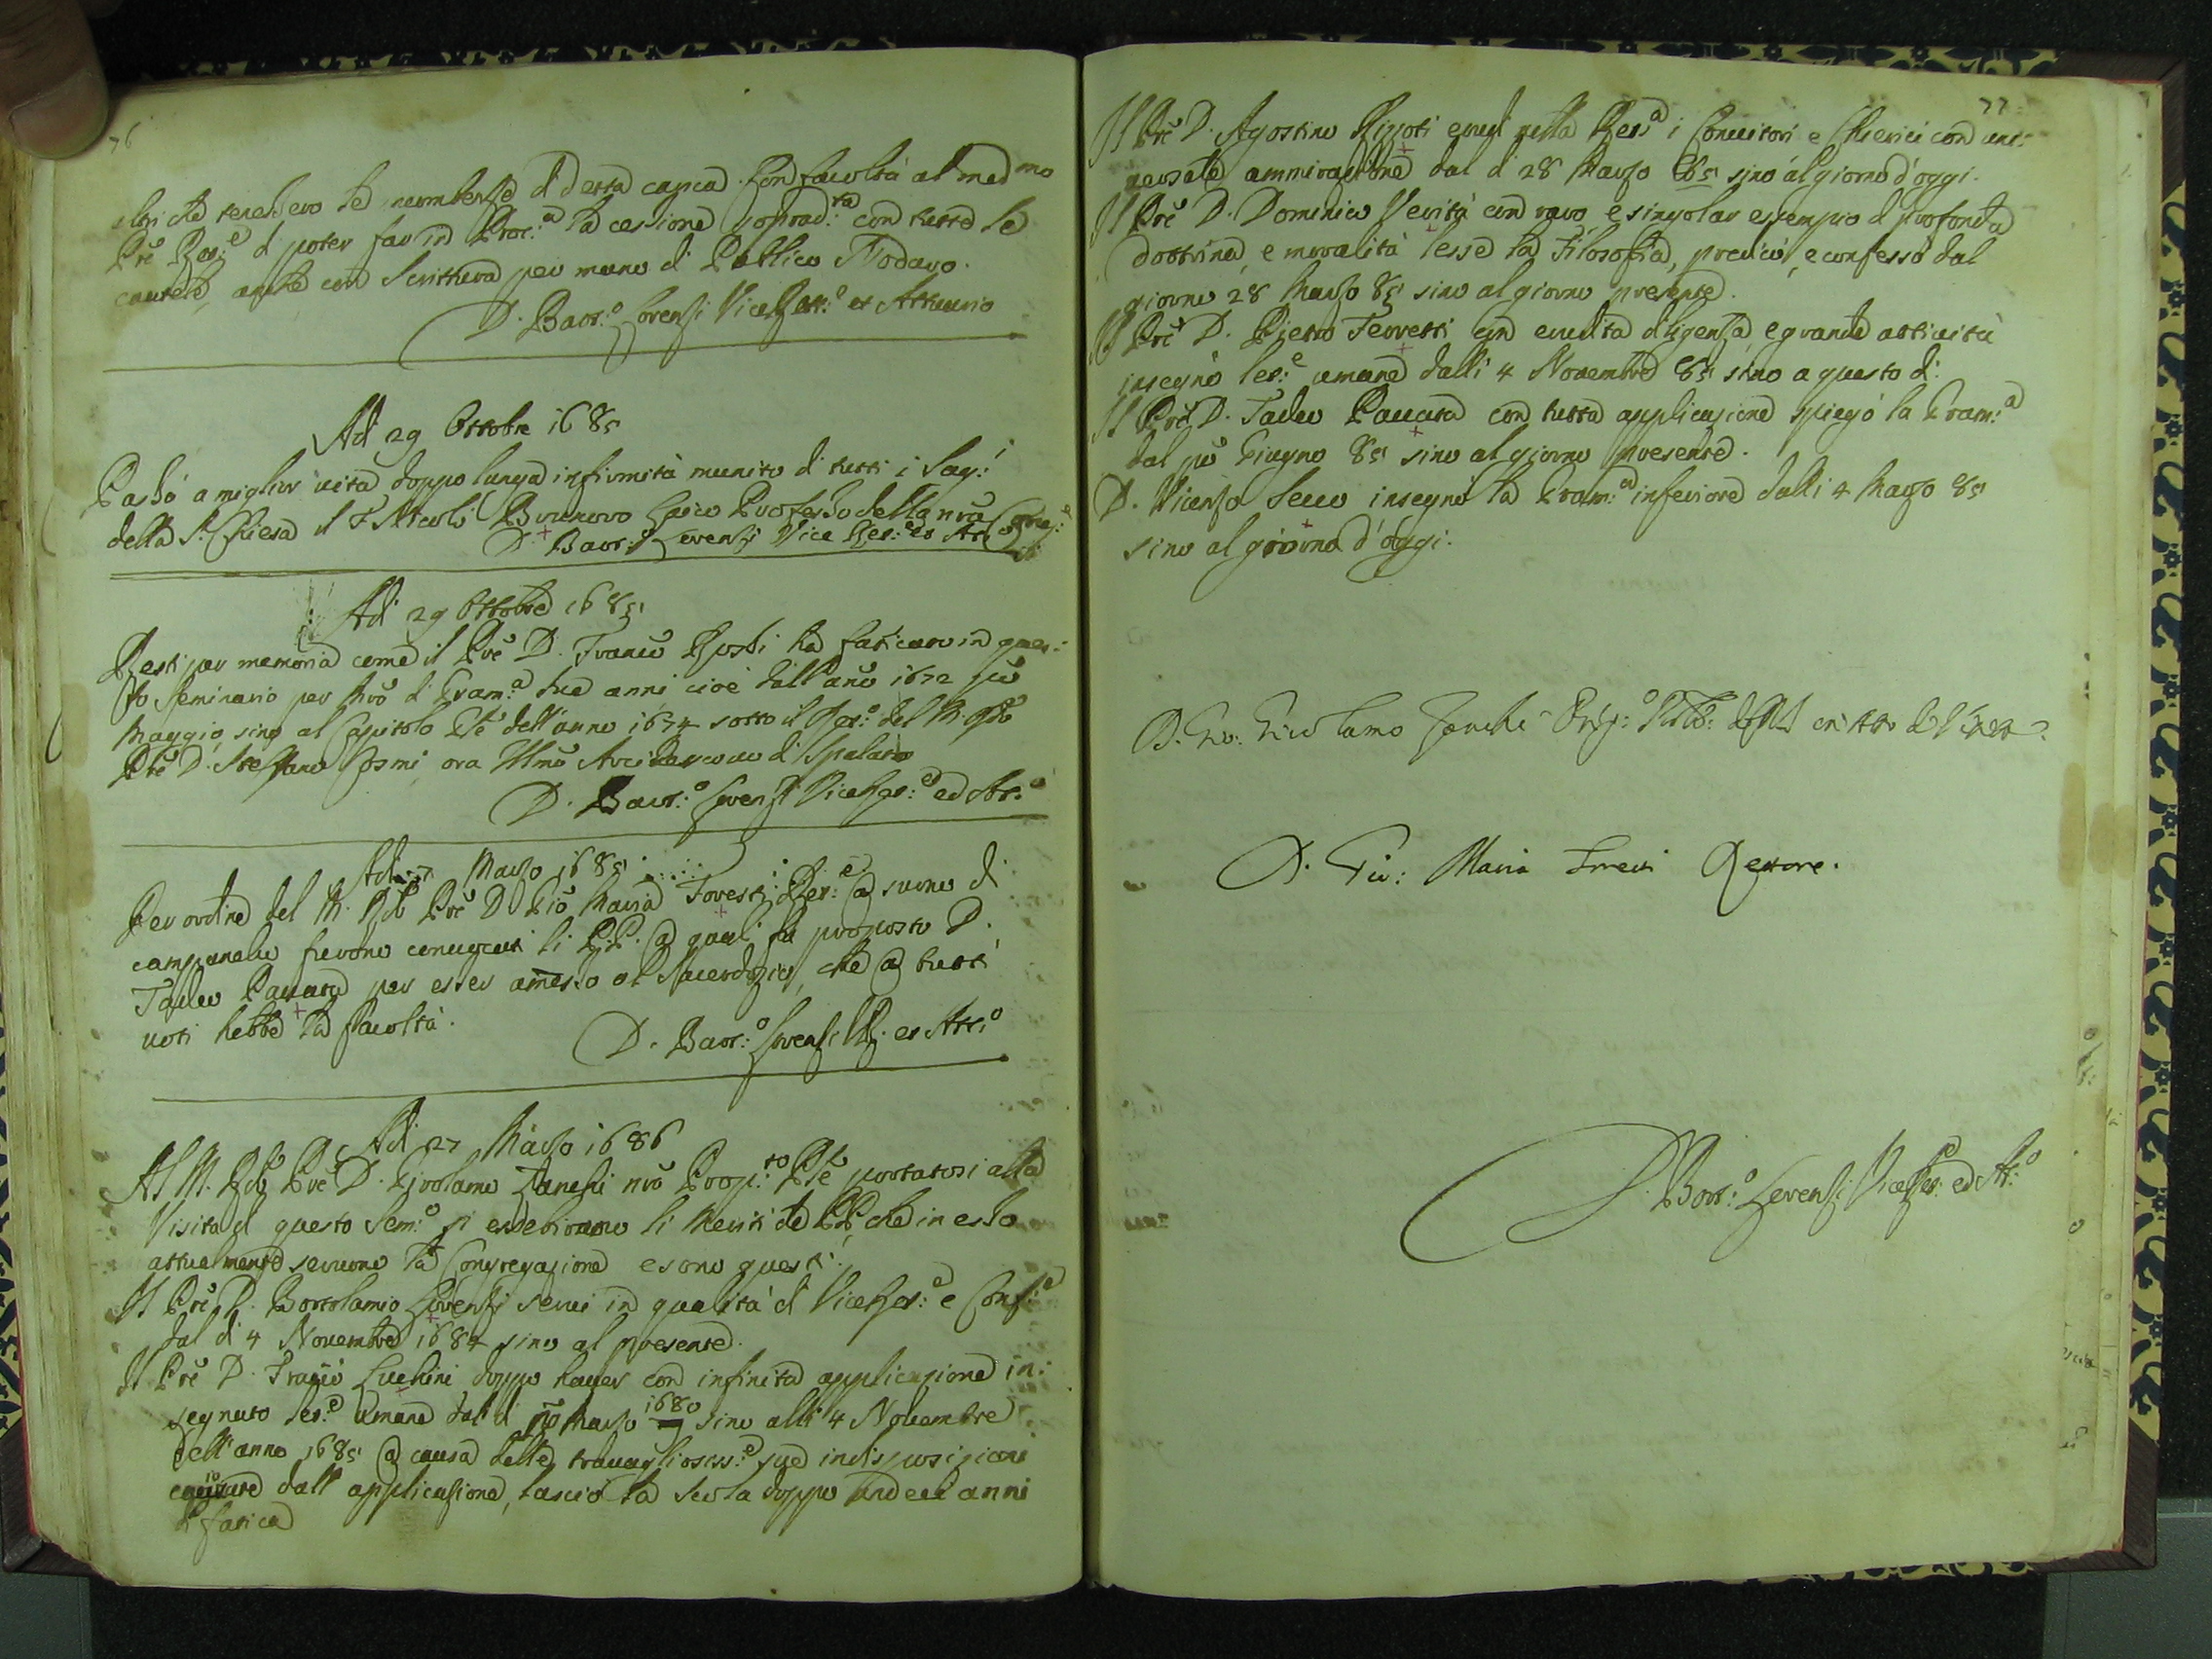 76
altri che tenessero le incombenze di detta carica. Con facoltà al med.mo
Prê Ret.e di poter far in Proc.a la cessione soprad.ta con tutte le
cautele, anche con Scrittura per mano di Publico Nodaro.
D. Bort.o Lorenzi ViceRet.e et Attuario
Adi 29 Ottobre 1685
Passò a miglior vita doppo lunga infirmità munito di tutti i Sag.i
della S. Chiesa il F. Brunoro Laico Professo della nrã Cong.e
D. Bort.o Lorenzi Vice Ret.e et Att.o
Adi 29 Ottobre 1685
Resti per memoria come il Prê D. Franco Rosti ha faticato in ques:
to Seminario per Mrõ di Gram.a due anni cioè dall'anõ 1672 põ
Maggio sino al Capitolo Gle dell'anno 1674 sotto il Ret.o del M. Rdo
Prê D. Steffano Cosmi ora Illmõ Arcivescovo di Spalato
D. Bort.o Lorenzi ViceRet.e ed Att.o
Adi 27 Marzo 1685
Per ordine del M. Rdo Prê D. Gio Maria Foresti Ret.e a suono di
campanello furono convocati li P.P. a quali fu proposto D.
Tadeo Pavata per esser amesso al Sacerdozio, che a tutti
voti hebbe la facoltà.
D. Bort.o Lorenzi VR. et Att.o
Adi 27 Marzo 1686
Al M. Rdo Prê D. Girolamo Zanchi nrõ Prop.to Gle portatosi alla
Visita di questo Sem.o si essebirono li Meriti de PP. che in esso
attualmente servono la Congregazione e sono questi.
Il Prê D. Bortolamio Lorenzi servì in qualità di ViceRet.e e Conf.e
dal dì 4 Novembre 1684 sino al presente.
Il Prê D. Franco Luchini doppo haver con infinita applicazione in:
segnato let.e umane dal dì pmõ Marzo 1680 sino alli 4 Novembre
dell'anno 1685 a causa delle travagliosiss.e sue indisposizioni
dall'applicazione, lasciò la Scola doppo undeci anni
di fatica
77
Il Prê D. Agostino Rizzoti eresse nella Ret.a i Convitori e Chierici con uni:
versale ammirazione dal dì 28 Marzo 85 sino al giorno d'oggi.
Il Prê D. Dominico Verità con raro e singolar essempio di profonda
dottrina, e moralità lesse la Filosofia, predicò, e confessò dal
giorno 28 Marzo 85 sino al giorno presente.
Il Prê D. Pietro Ferretti con erudita diligenza, e grande attività
insegnò let.e umane dalli 4 Novembre 85 sino a questo dì.
Il Prê D. Tadeo Pavata con tutta applicazione spiegò la Gram.a
dal põ Giugno 85 sino al giorno presente.
D. Vicenzo Secco insegnò la Gram.a inferiore dalli 4 Marzo 85
sino al giorno d'oggi.
D. Gio: Girolamo Zanchi
D. Gio: Maria Foresti Rettore.
D. Bort.o Lorenzi ViceRet.e ed Att.o